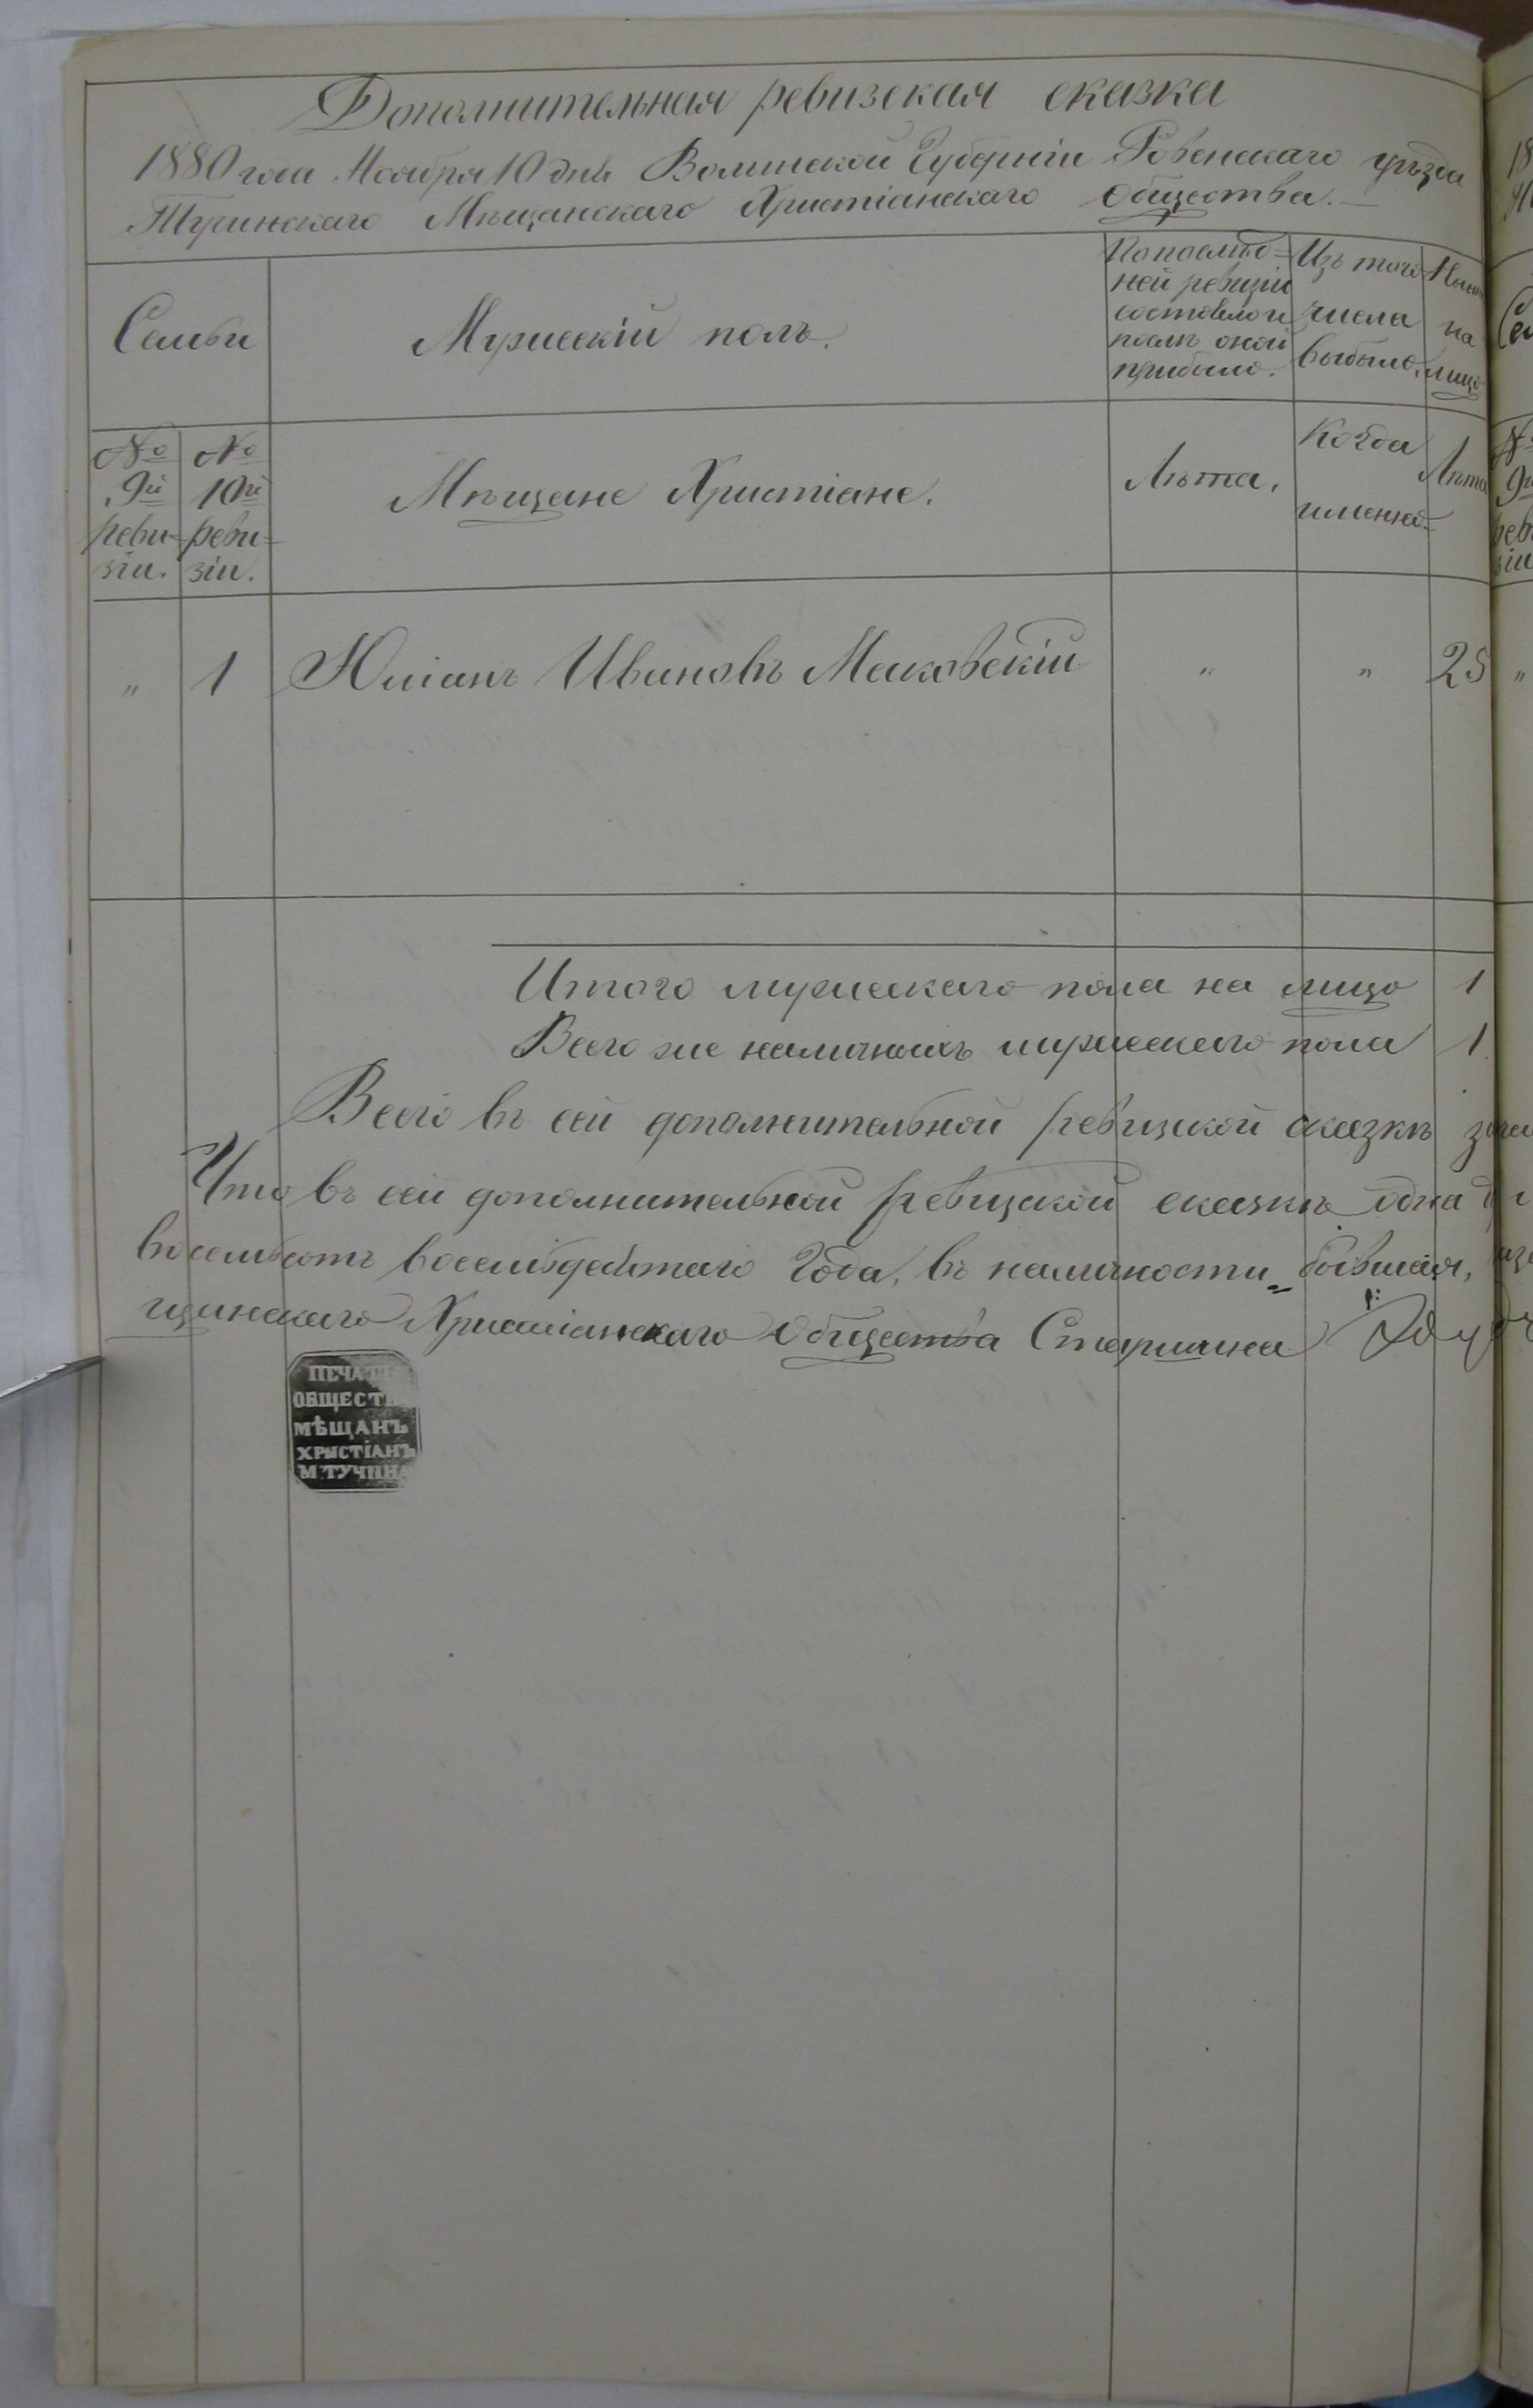 Дополнительная ревизская сказка
1880 года Ноября 10 дня Волынской Губерніи Ровенскаго уѣзда
Тучинскаго Мѣщанскаго Христіанскаго Общества.
Семьи
Мужескій полъ.
По послѣд-
ней ревизіи
состояло и
послѣ оной
прибыло.
Изъ того
числа
выбыло.
Нынѣ
на
лицо
№
9й
реви-
зіи.
№
10й
реви-
зіи.
Мѣщане Христіане.
Лѣта.
Когда
именно
Лѣта
" 1 Юліанъ Ивановъ Маковскій " " 25
Итого мужескаго пола на лицо 1
Всего же наличныхъ мужескаго пола 1
Всего въ сей дополнительной ревизской сказкѣ
Что въ сей дополнительной ревизской сказкѣ одна
восемьсотъ восемьдесятаго Года, въ наличности бывшая,
щанскаго Христіанскаго Общества Старшина
ПЕЧАТЬ
ОБЩЕСТВ
МѢЩАНЪ
ХРИСТІАНЪ
М. ТУЧИНА